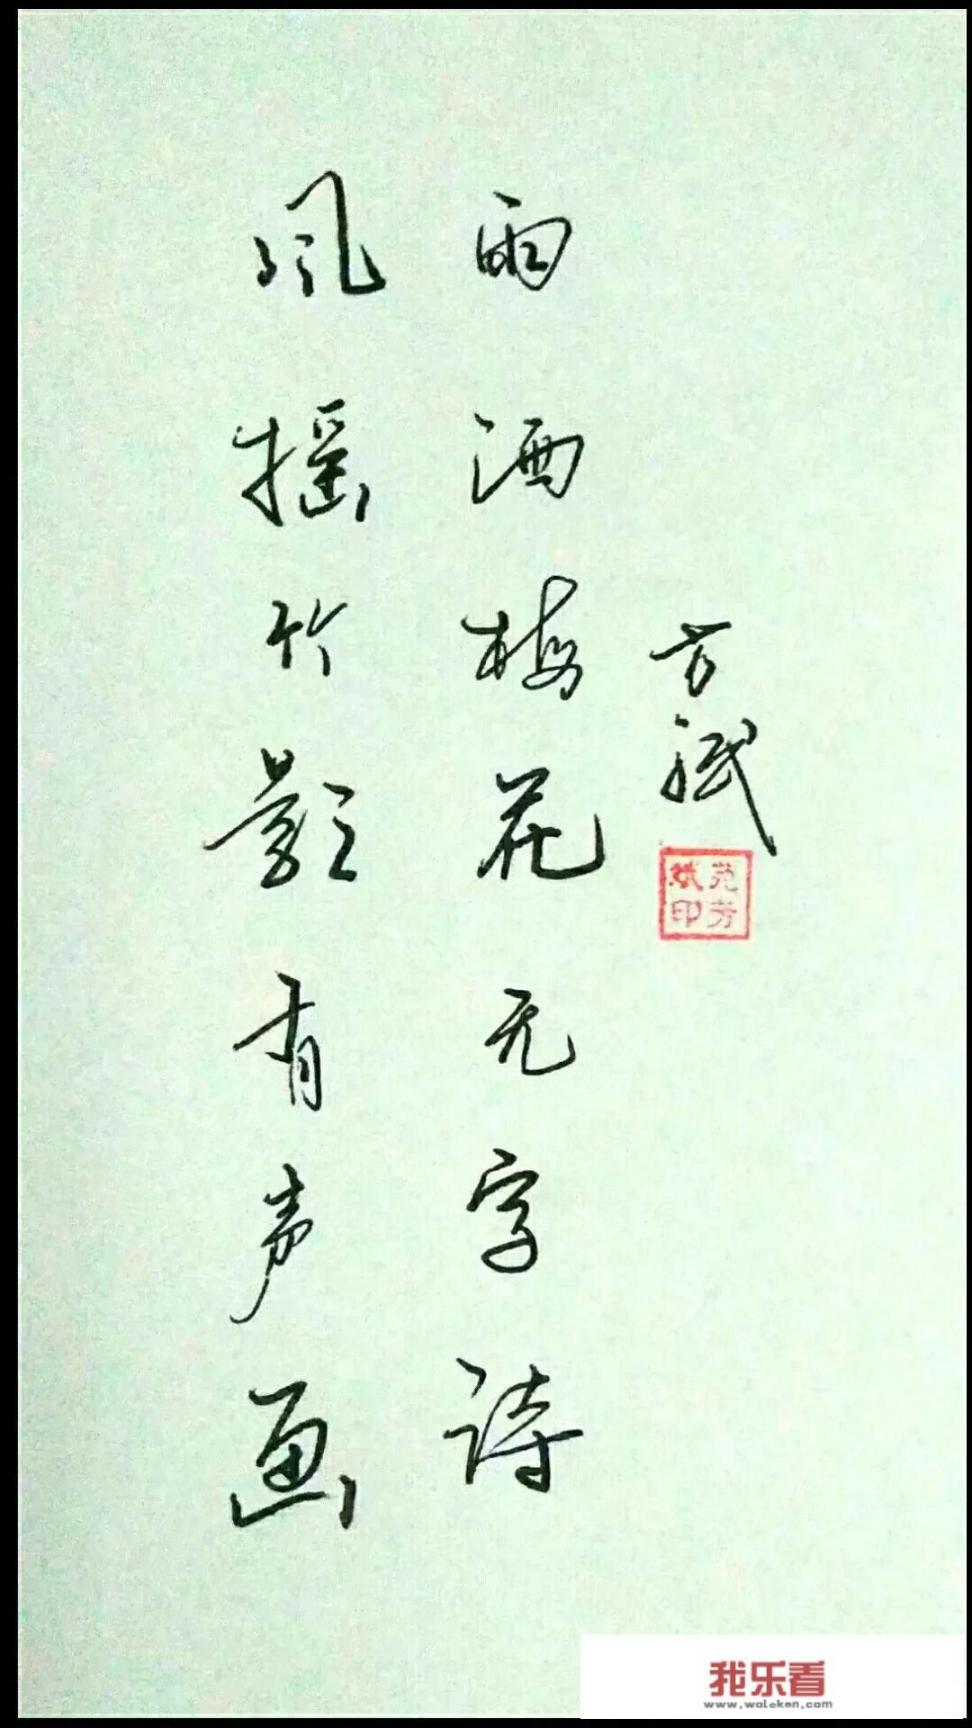 风摇竹影有声画
雨洒梅花无字诗
方斌
苑芳
斌印
我乐看
www.woleken.com